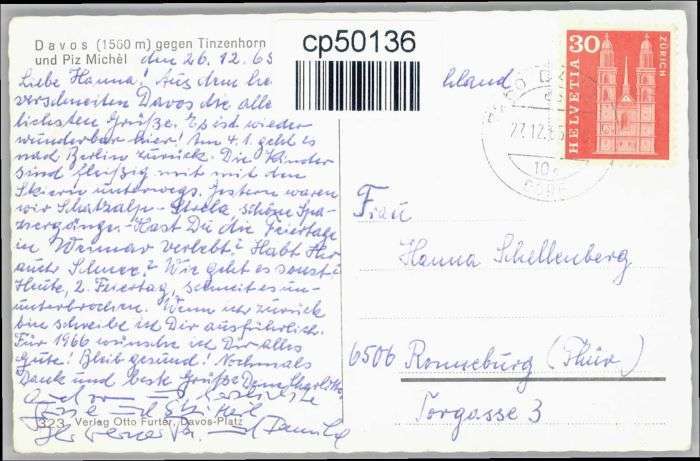 Davos (1560 m) gegen Tinzenhorn
und Piz Michèl
den 26.12.65
Liebe Hanna! Aus dem
verschneiten Davos die aller
lichsten Grüße. Es ist wieder
wunderbar hier! Am 4.1. geht es
nach Berlin zurück. Die Kinder
sind fleißig mit mit den
Skiern unterwegs. Gestern waren
wir Schatzalp - Strela, schöne Spa-
ziergänge. Hast Du die Feiertage
in Weimar verlebt? Habt Ihr
auch Schnee? Wie geht es sonst?
Heute, 2. Feiertag, schneit es un-
unterbrochen. Wenn ich zurück
bin schreibe ich Dir ausführlich.
Für 1966 wünsche ich Dir alles
Gute! Bleib gesund! Nochmals
Dank und beste Grüße Deine
Auch von
323 Verlag Otto Furter, Davos-Platz
cp50136
hland
30
HELVETIA
ZÜRICH
27.12.65
Frau
Hanna Schellenberg
6506 Ronneburg (Thür)
Torgasse 3